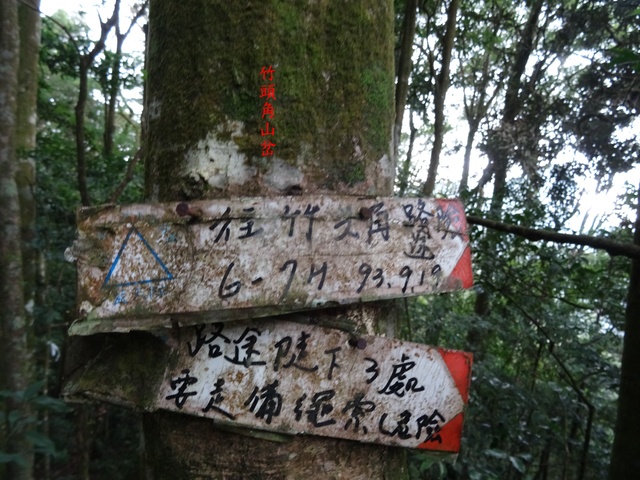 竹頭角山岔
往竹大角路途
6-7H 93.9.19
路途陡下3處
要走備繩索危險